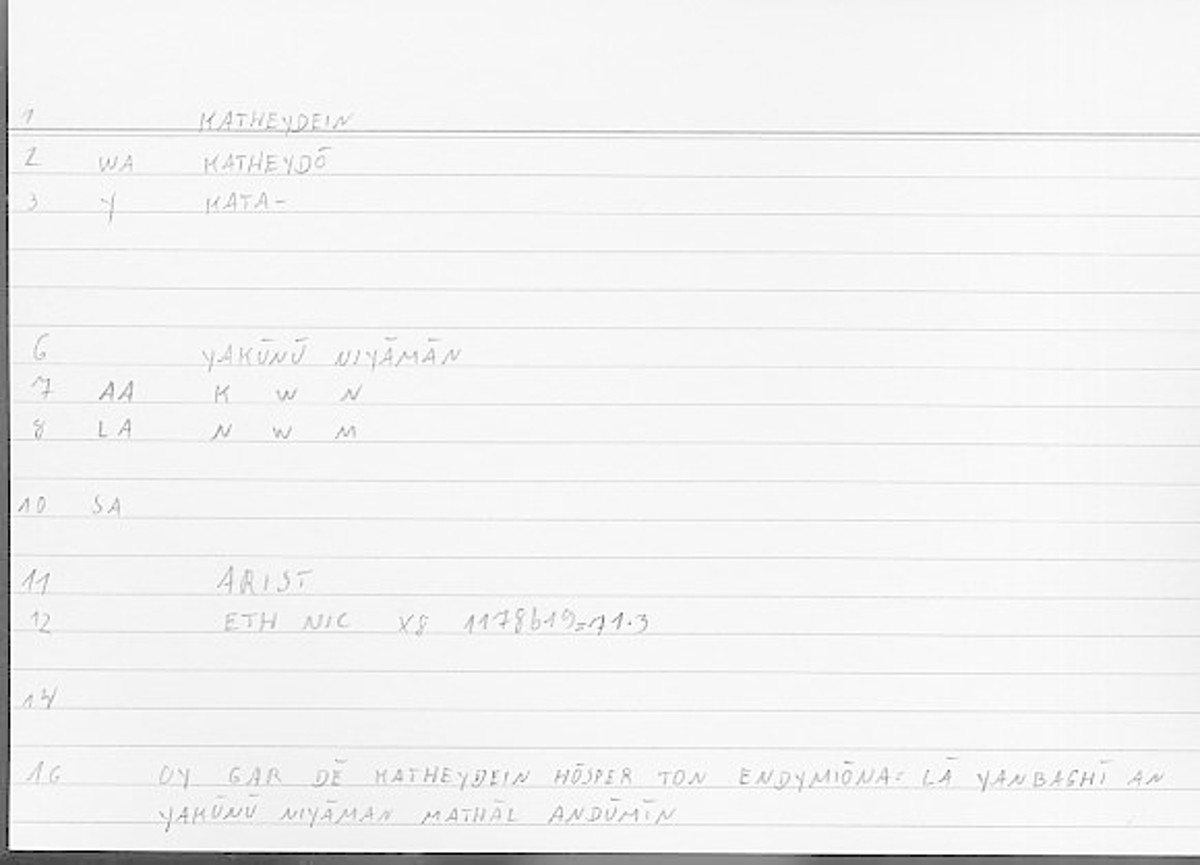 1 KATHEYDEIN
2 WA KATHEYDŌ
3 Y KATA-
6 YAKŪNŪ NIYĀMĀN
7 AA K W N
8 LA N W M
10 SA
11 ARIST
12 ETH NIC X8 1178b19=71.3
14
16 OY GAR DĒ KATHEYDEIN HŌSPER TON ENDYMIŌNA: LĀ YANBAGHĪ AN
YAKŪNŪ NIYĀMAN MATHĀL ANDŪMĪN